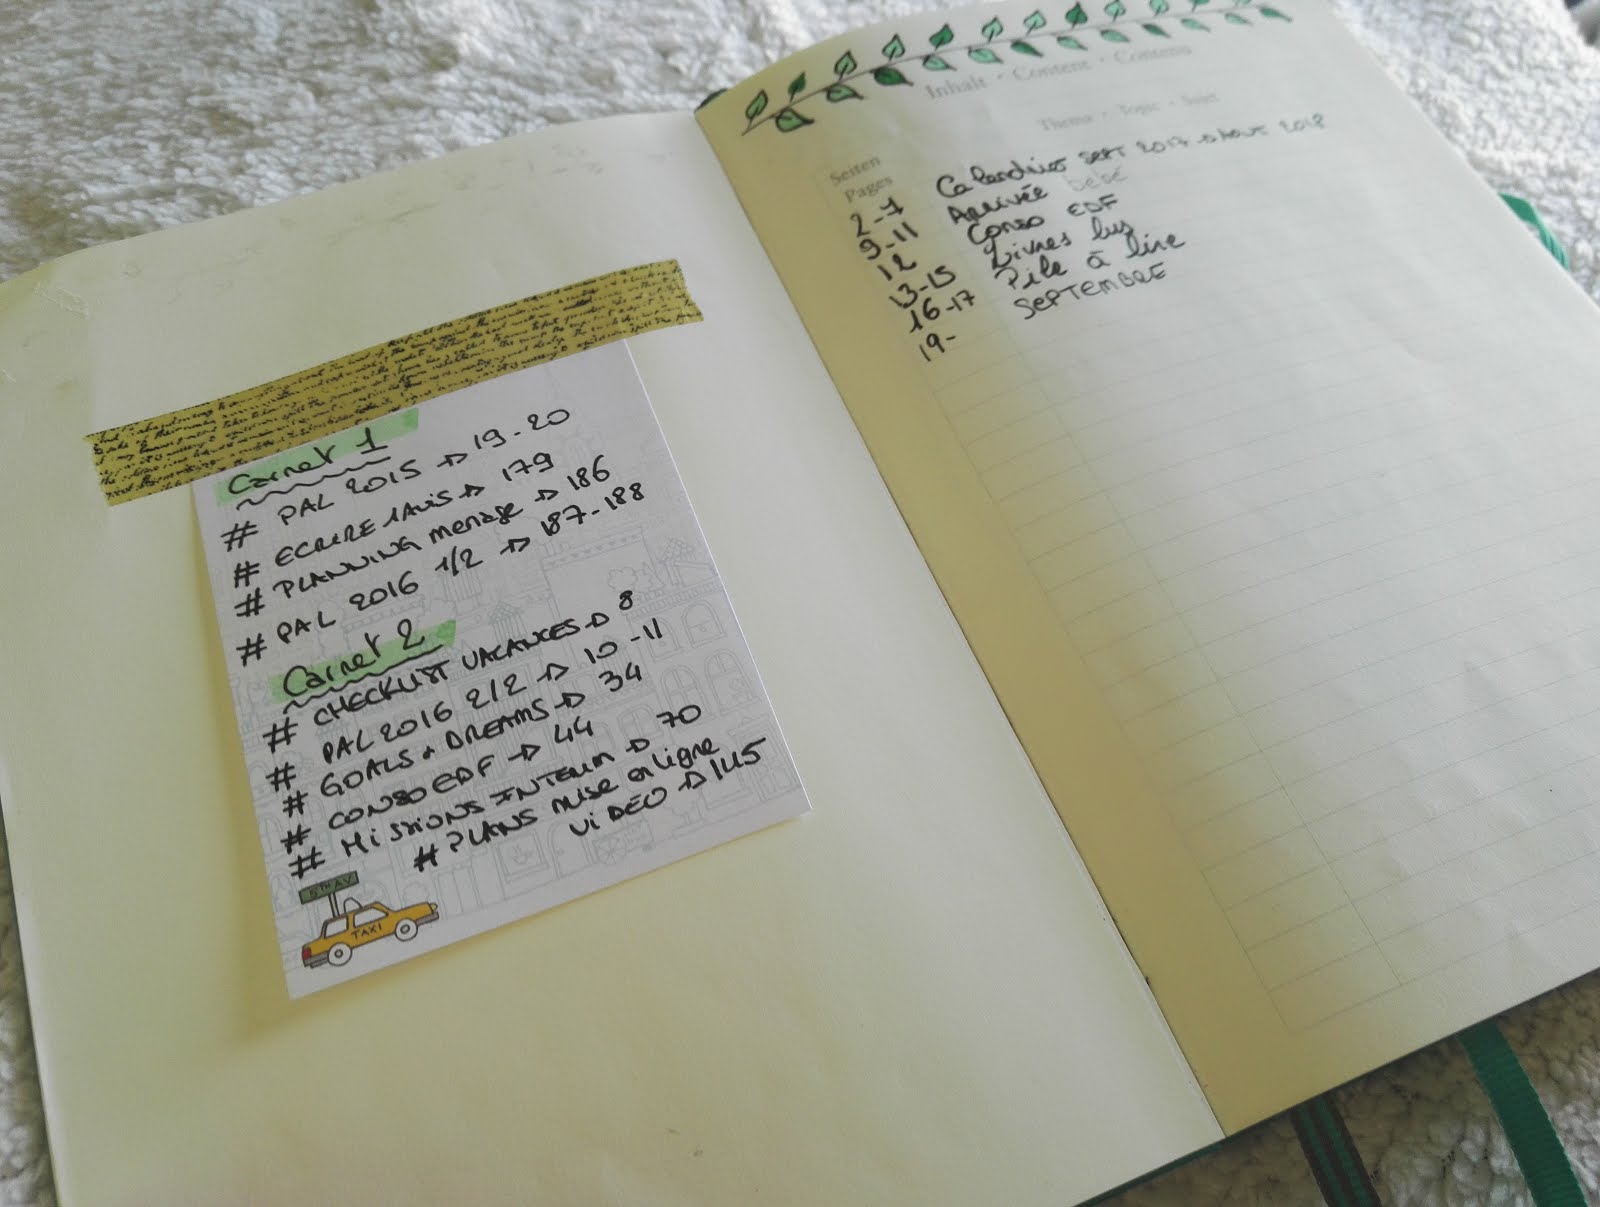 Carnet 1
# PAL 2015 → 19-20
# ECRIRE 1 AVIS → 179
# PLANNING menage → 186
# PAL 2016 1/2 → 187-188
Carnet 2
# CHECKLIST VACANCES → 8
# PAL 2016 2/2 → 10-11
# GOALS & DREAMS → 34
# CONSO EDF → 44
# MISSIONS INTERIM → 70
# PLANS mise en ligne
VIDÉO → 145
5TH AV
TAXI
Inhalt · Content · Contenu
Seiten Thema · Topic · Sujet
Pages
2-7 Calendrier SEPT 2017 → AOUT 2018
9-11 Arrivée bébé
12 Conso EDF
13-15 Livres lus
16-17 Pile à lire
19- SEPTEMBRE